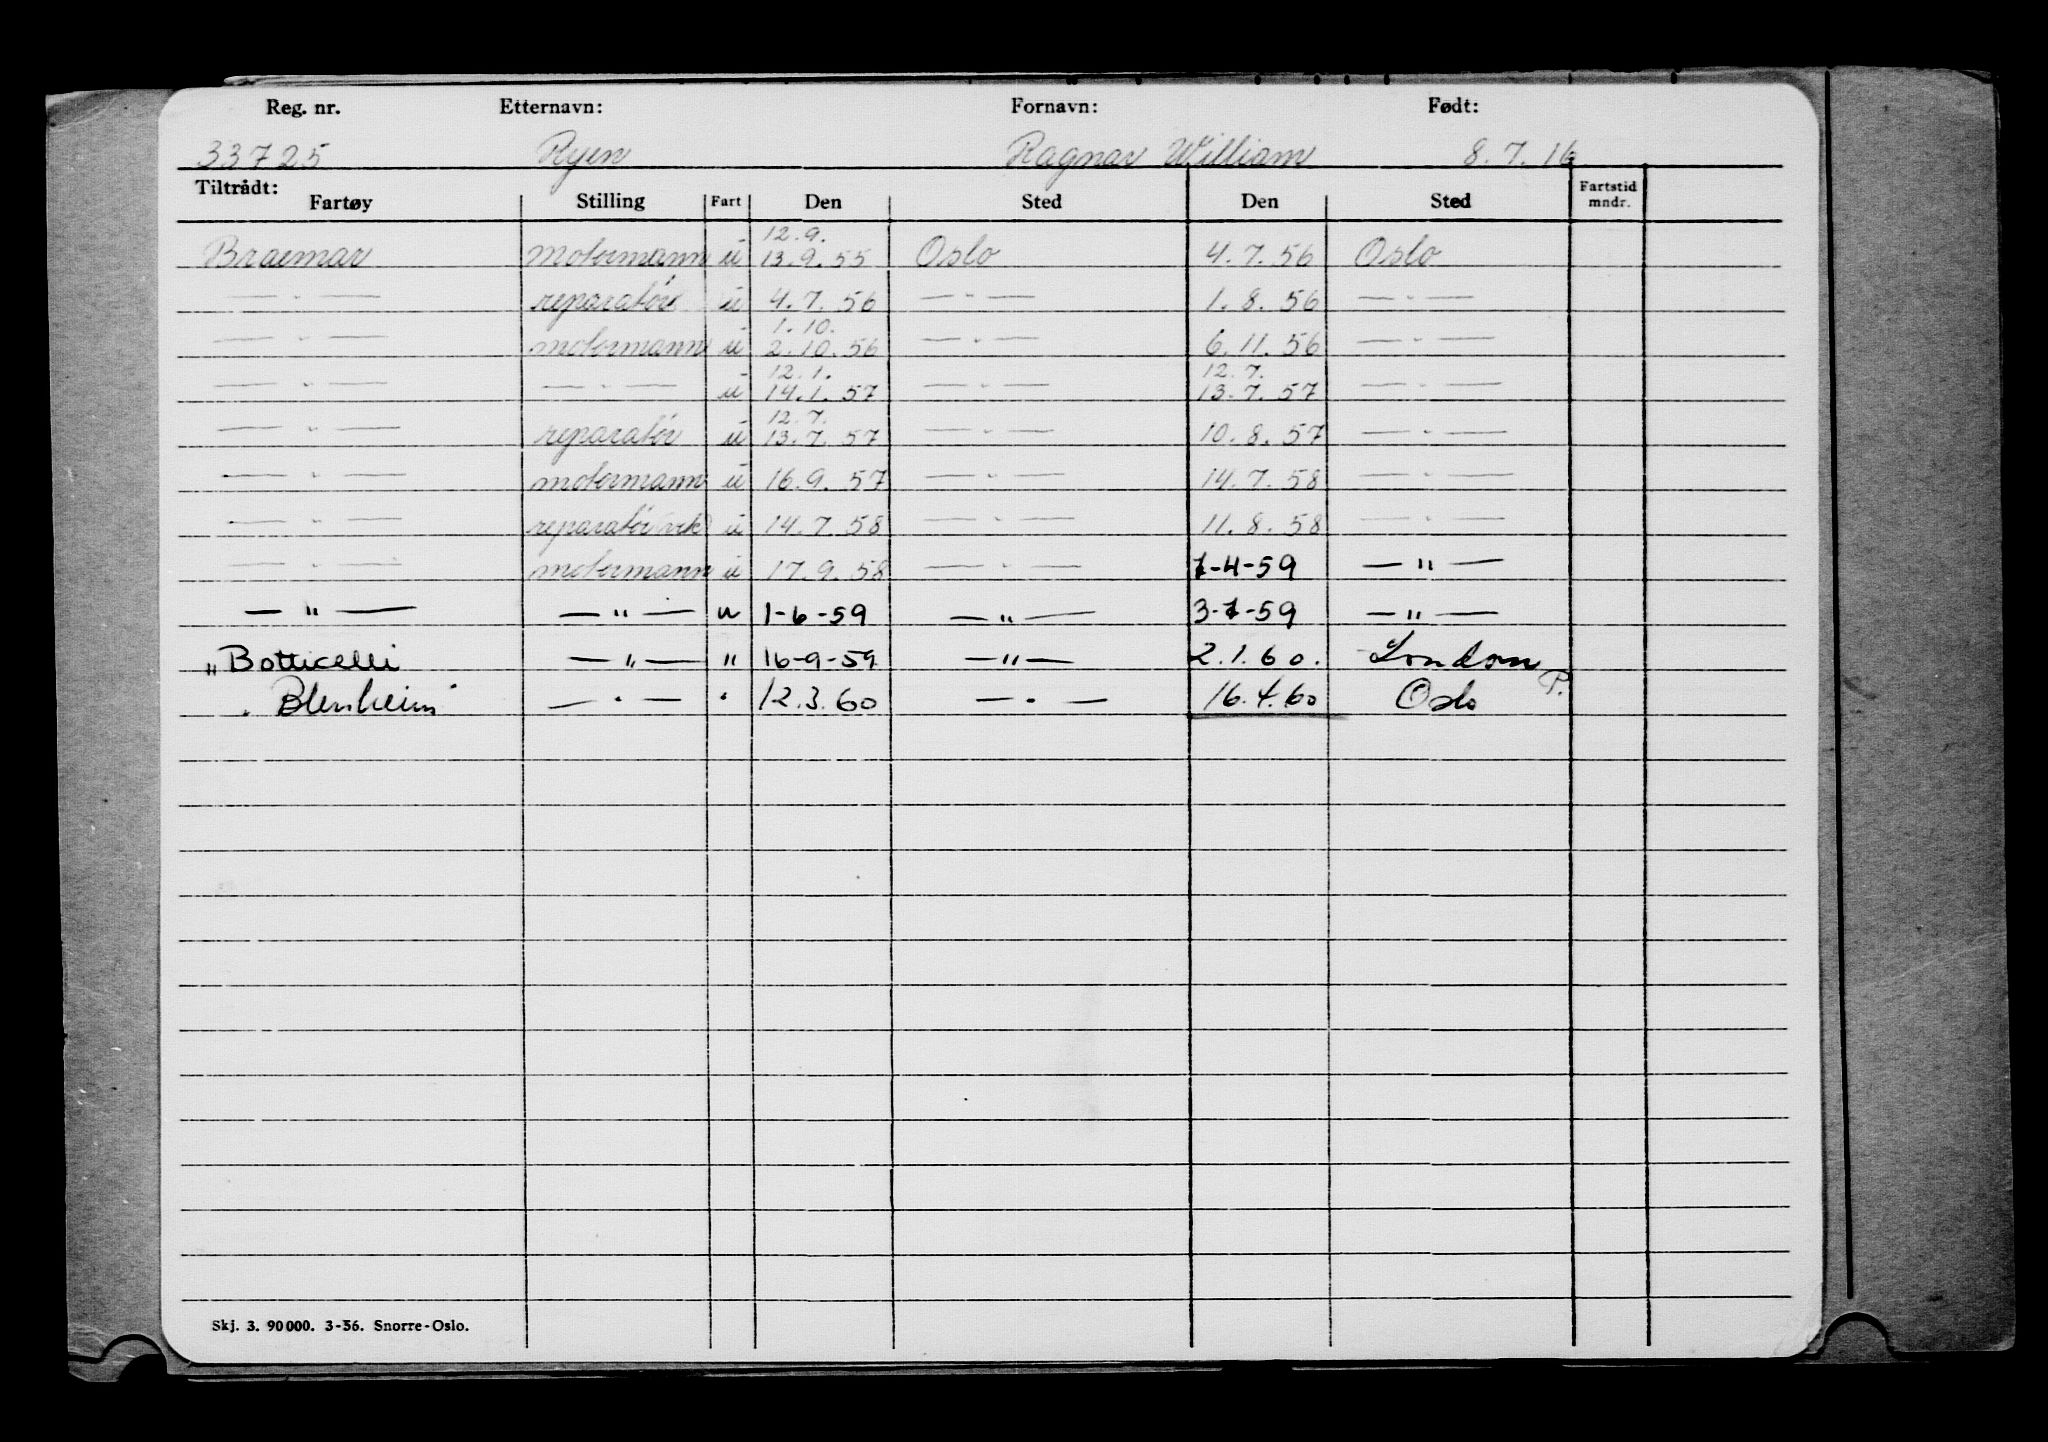 Reg. nr. Etternavn: Fornavn: Født:
33725 Ryen Ragnar William 8.7.16
Tiltrådt:
Fartøy Stilling Fart Den Sted Den Sted Fartstid mndr.
12.9.
Braemar motormann u 13.9.55 Oslo 4.7.56 Oslo
— " — reparatør u 4.7.56 — " — 1.8.56 — " —
1.10.
— " — motormann u 2.10.56 — " — 6.11.56 — " —
12.1. 12.7.
— " — — " — u 14.1.57 — " — 13.7.57 — " —
12.7.
— " — reparatør u 13.7.57 — " — 10.8.57 — " —
— " — motormann u 16.9.57 — " — 14.7.58 — " —
— " — reparatør u 14.7.58 — " — 11.8.58 — " —
— " — motormann u 17.9.58 — " — 1-4-59 — " —
— " — — " — u 1-6-59 — " — 3-7-59 — " —
"Botticelli — " — " 16-9-59 — " — 2.1.60. London
"Blenheim" — " — " 12.3.60 — " — 16.4.60 Oslo P.
Skj. 3. 90000. 3-56. Snorre-Oslo.